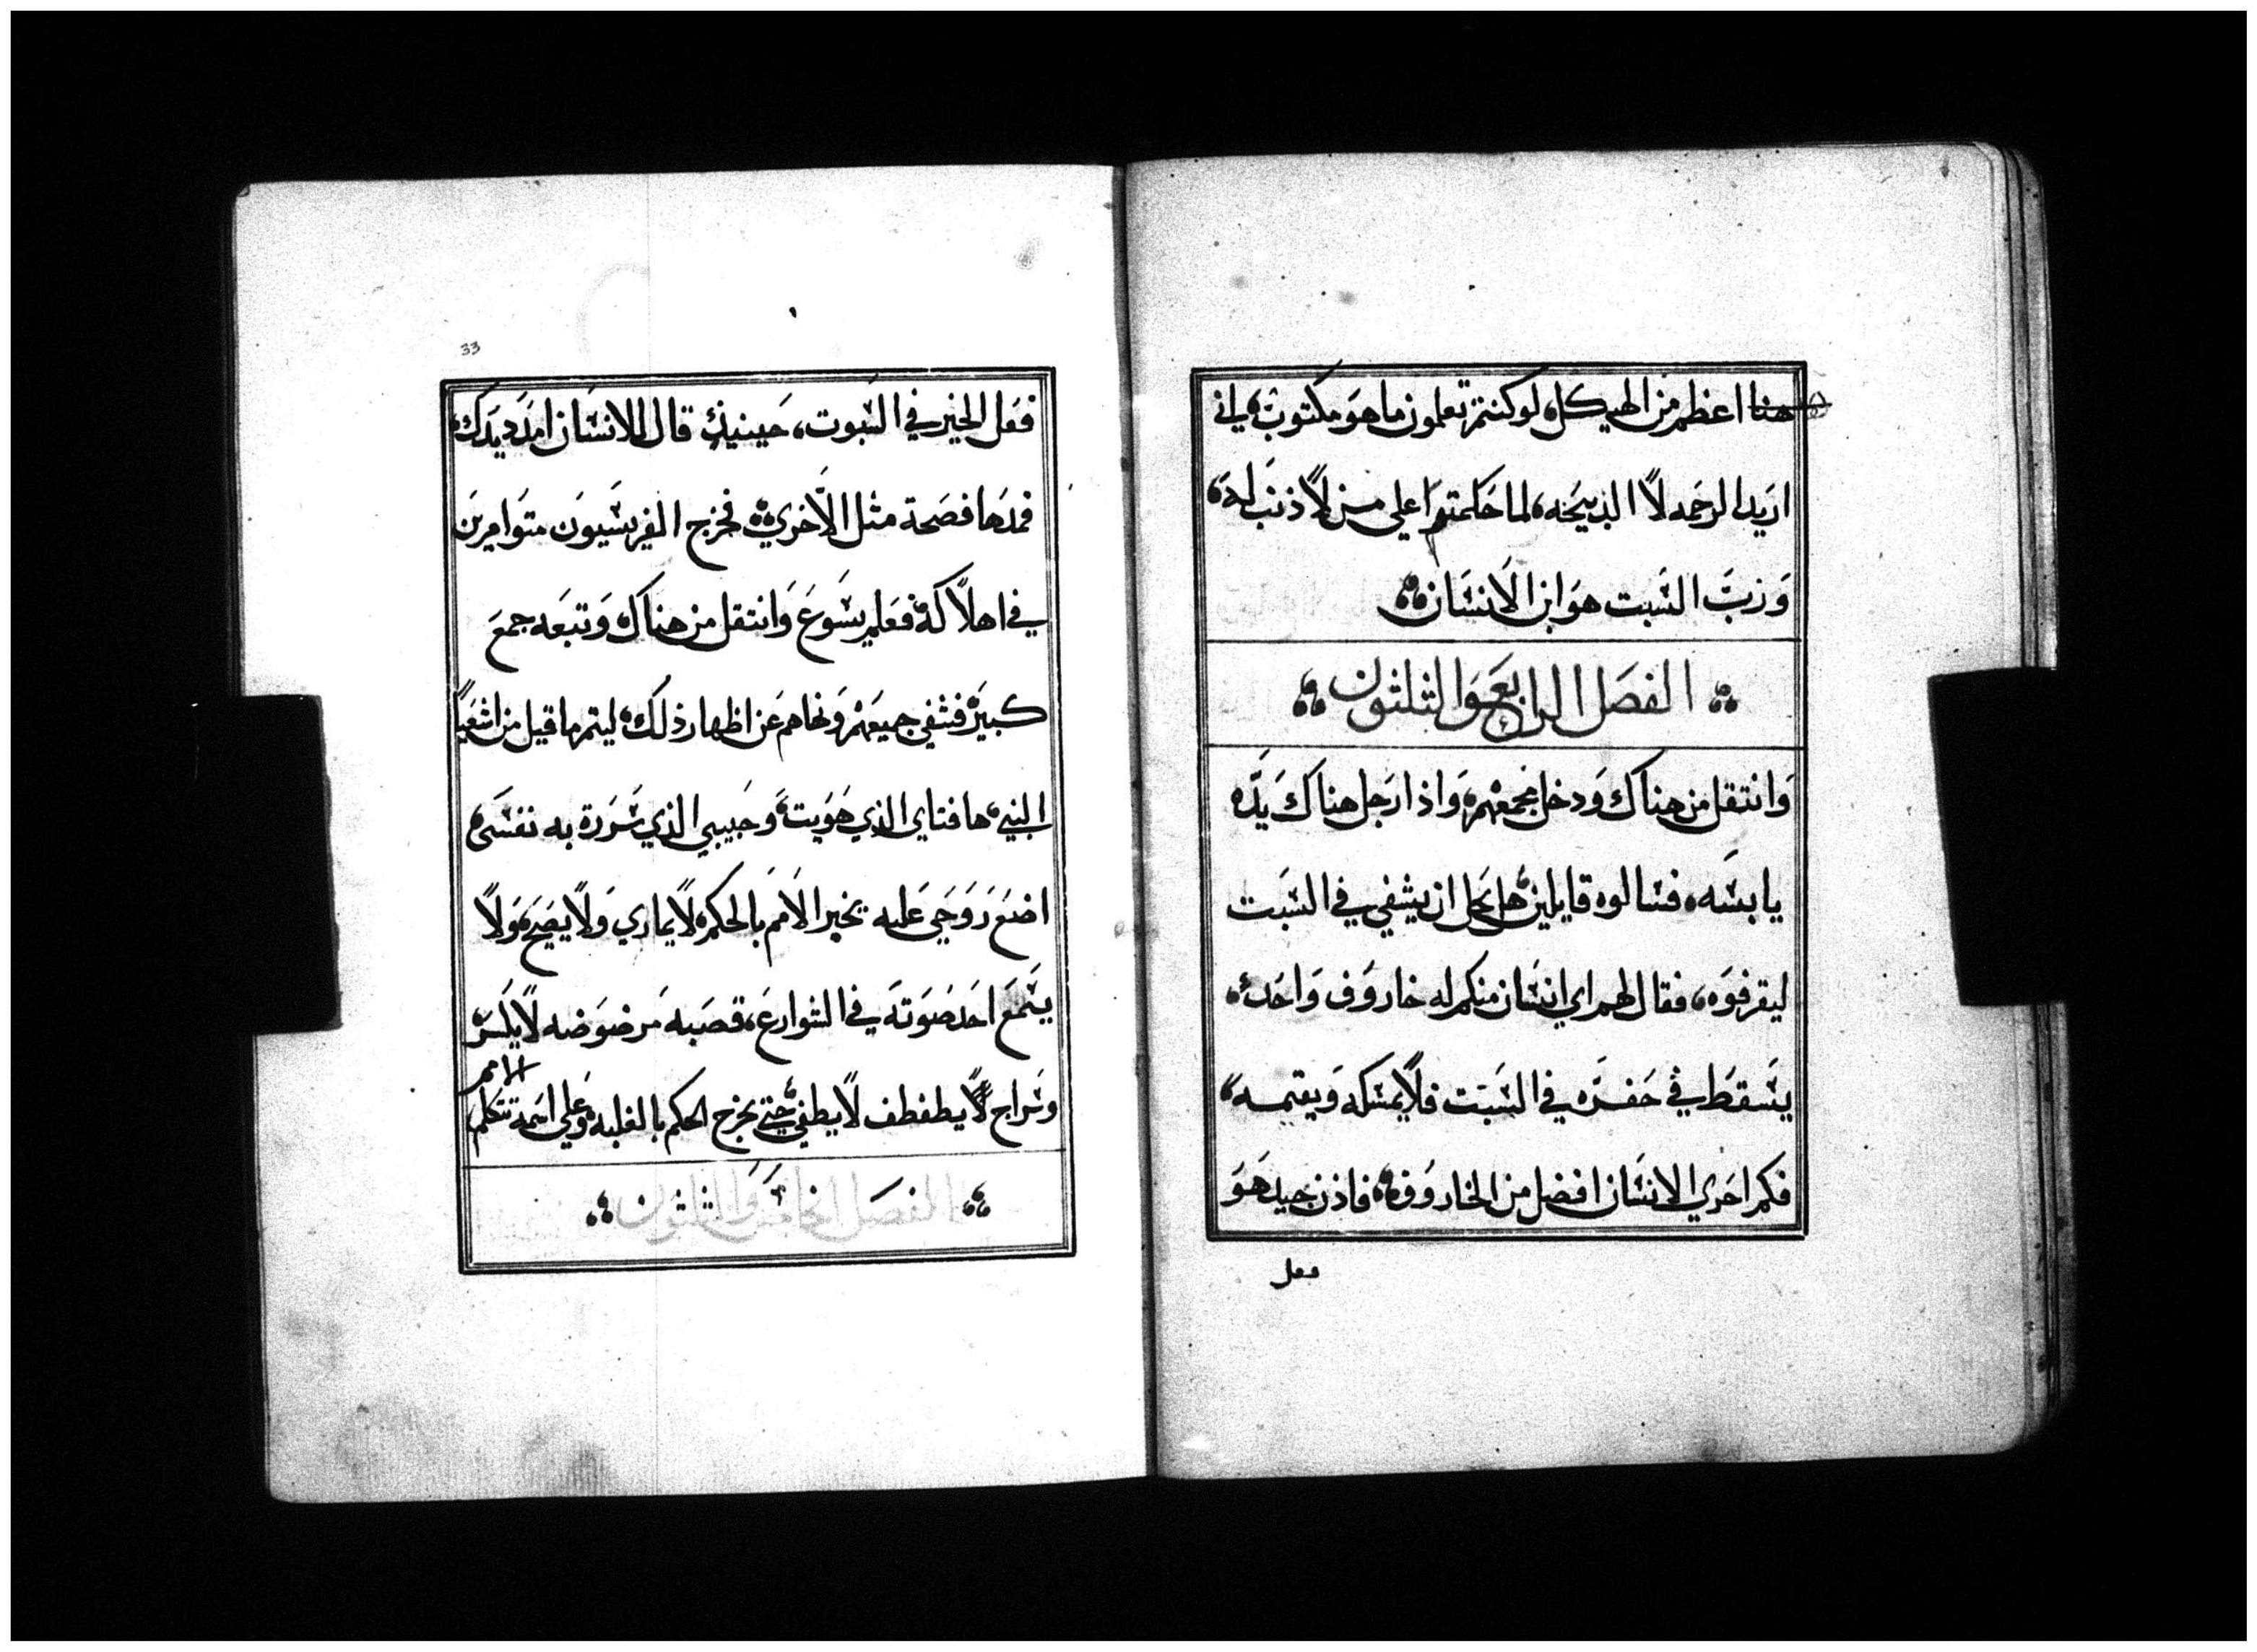 هنا اعظم من الهيكل لو كنتم تعلمون ما هو مكتوب اني
اريد الرحمه لا الذبيحه لما حكمتوا على من لا ذنب له
ورب السبت هو ابن الانسان
الفصل الرابع والثلثون
وانتقل من هناك ودخل مجمعهم واذا رجل هناك يده
يابسه فسالوه قايلين هل يحل ان يشفي في السبت
ليقرفوه فقال لهم اي انسان منكم له خاروف واحد
يسقط في حفره في السبت فلا يمسكه ويقيمه
فكم احري الانسان افضل من الخاروف فاذن جيد هو
فعل
33
فعل الخير في السبوت حينيذ قال للانسان امدد يدك
فمدها فصحة مثل الاخري فخرج الفريسيون متوامرين
في اهلاكه فعلم يسوع وانتقل من هناك وتبعه جمع
كبير فشفي جميعهم ونهاهم عن اظهار ذلك ليتم ما قيل من اشعيا
النبي ها فتاي الذي هويت وحبيبي الذي سررة به نفسي
اضع روحي عليه يخبر الامم بالحكم لا يماري ولا يصيح ولا
يسمع احد صوته في الشوارع قصبه مرضوضه لا يكسر
الامم
وسراج يطفطف لا يطفي حتي يخرج الحكم بالغلبه وعلي اسمه تتكلم
الفصل الخامس والثلثون